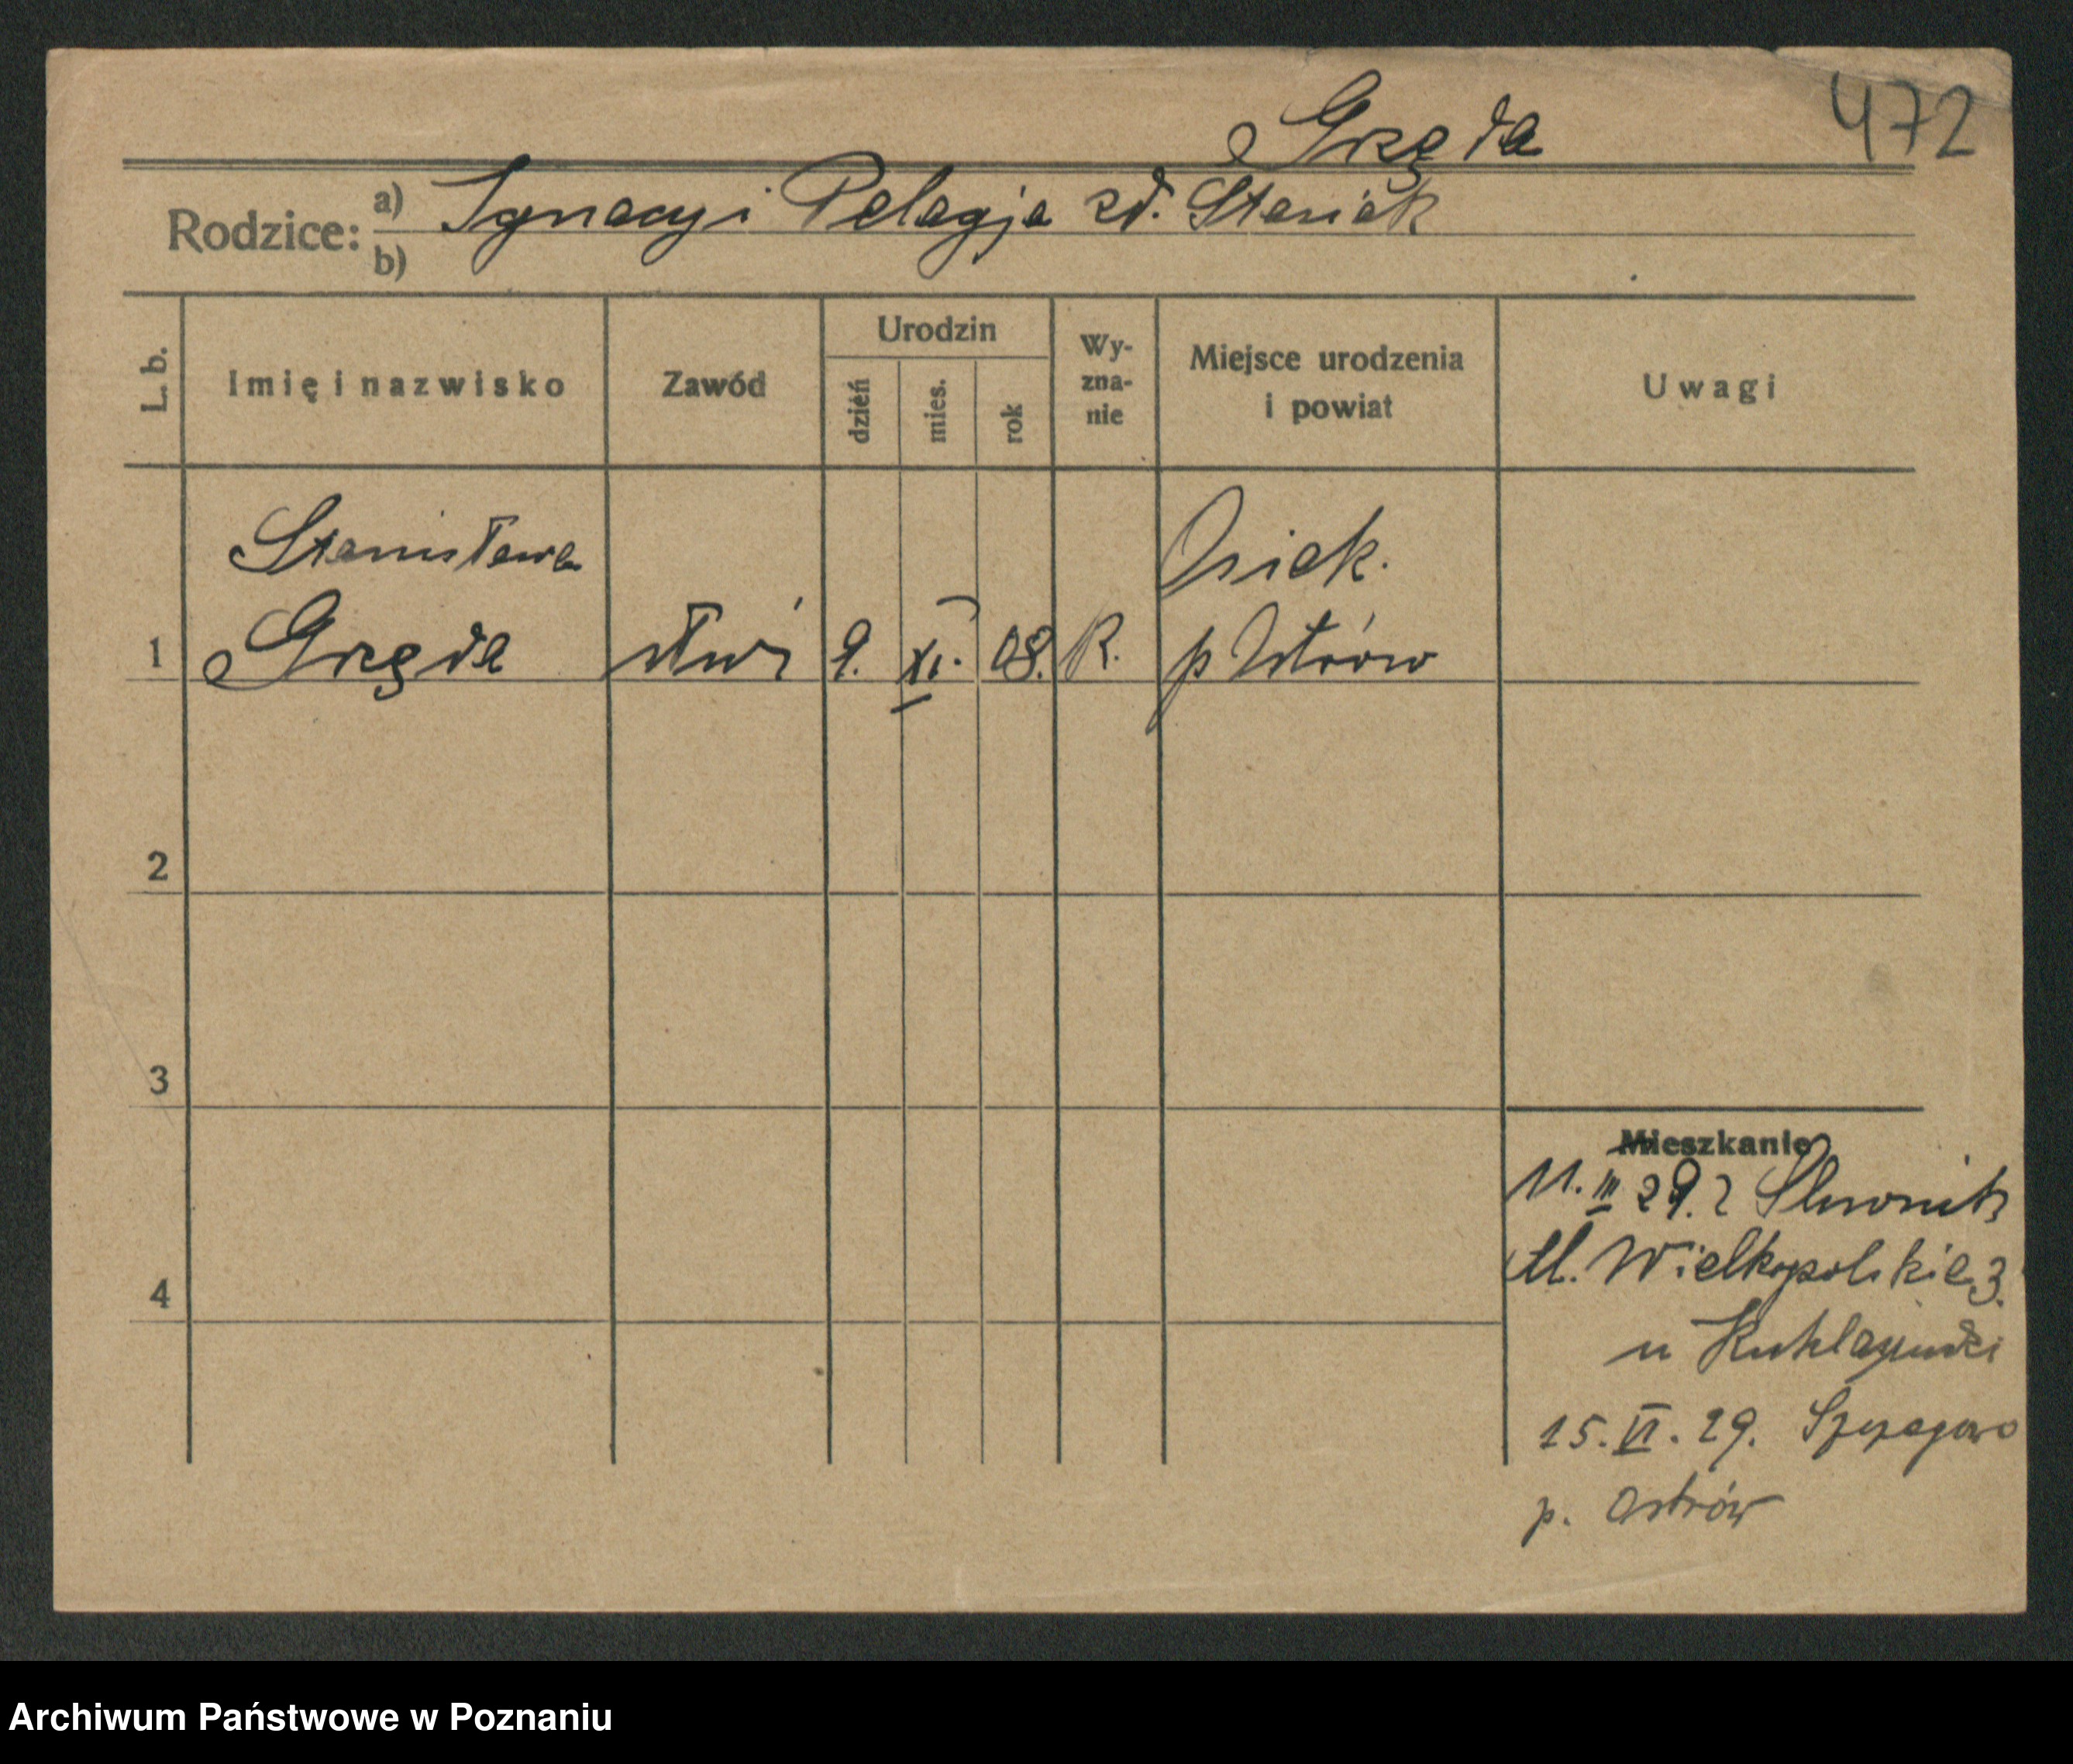 Grzęda 472
Rodzice: a) Ignacy i Pelagja zd. Stasiak
b)
L. b. Imię i nazwisko Zawód Urodzin dzień mies. rok Wy-zna-nie Miejsce urodzenia i powiat Uwagi
Stanisława Osiek.
1 Grzęda służ 9. XI. 08. R. p Ostrów
2
3
Mieszkanie
11. III 29. z
4 Ul. Wielkopolskie 3.
u
15. VI. 29.
p. Ostrów
Archiwum Państwowe w Poznaniu